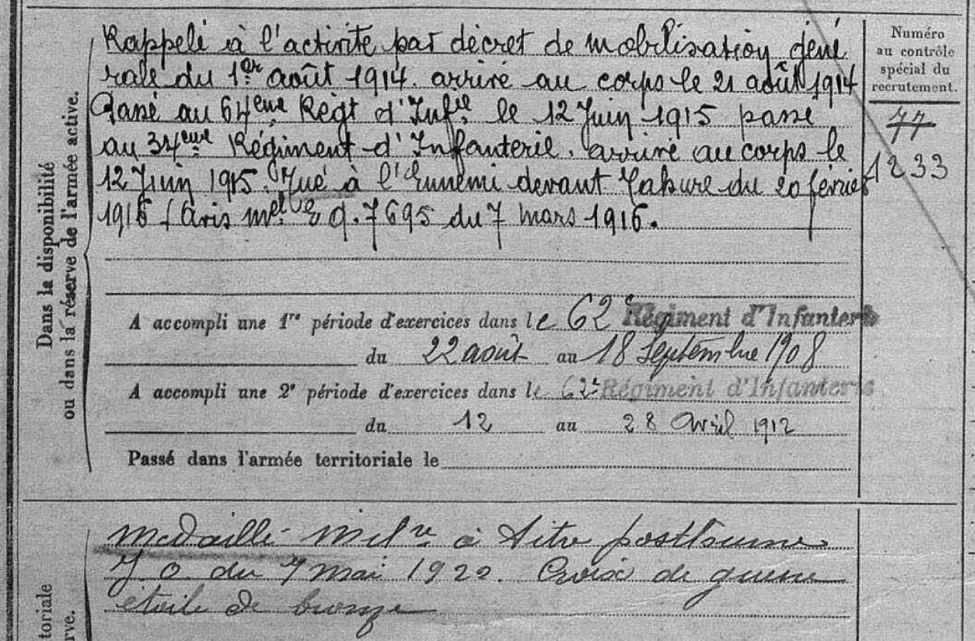 Rappelé à l'activité par décret de mobilisation géné
rale du 1er août 1914. arrivé au corps le 21 août 1914
Passé au 64eme Régt d'Infie le 12 Juin 1915 passé
au 34eme Régiment d'Infanterie. arrivé au corps le
12 Juin 1915. Tué à l'Ennemi devant Tahure du 20 février
1916 (Avis mel 7695 du 7 mars 1916.
Numéro
au contrôle
spécial du
recrutement.
77
1233
Dans la disponibilité
ou dans la réserve de l'armée active.
A accompli une 1re période d'exercices dans le 62e Régiment d'Infanterie
du 22 août au 18 Septembre 1908
A accompli une 2e période d'exercices dans le 62e Régiment d'Infanterie
du 12 au 28 Avril 1912
Passé dans l'armée territoriale le
Médaille Milre à titre posthume
J O du 7 mai 1922. Croix de guerre
étoile de bronze
toriale
rve.